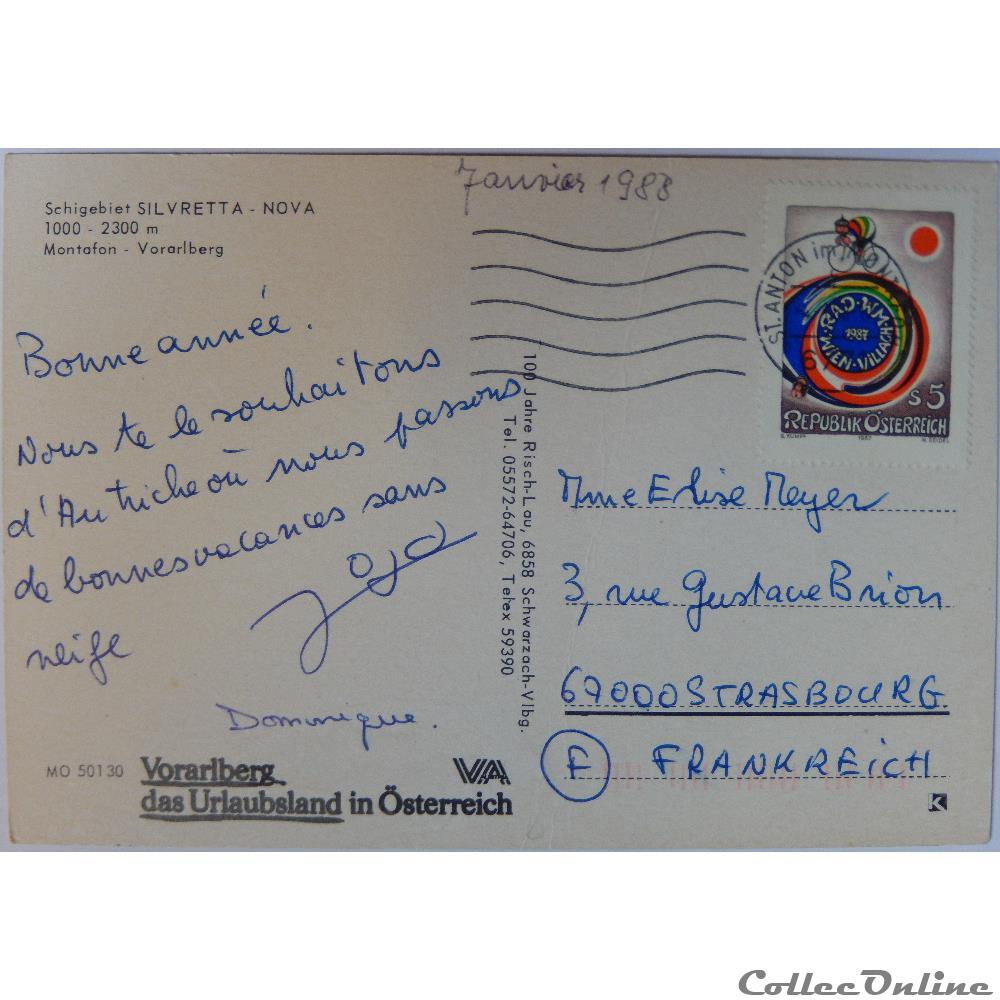 Janvier 1988
Schigebiet SILVRETTA - NOVA
1000 - 2300 m
Montafon - Vorarlberg
Bonne année.
Nous te le souhaitons
d'Autriche où nous passons
de bonnes vacances sans
neige
Jojo
Dominique.
MO 50130
Vorarlberg
das Urlaubsland in Österreich
VA
100 Jahre Risch-Lau, 6858 Schwarzach-Vlbg.
Tel. 05572-64706, Telex 59390
ST. ANTON im MONT
RAD·WM·
WIEN-VILLACH
1987
S 5
REPUBLIK ÖSTERREICH
1987
Mme Elise Meyer
3, rue Gustave Brion
67000 STRASBOURG
F FRANKREICH
K
CollecOnline